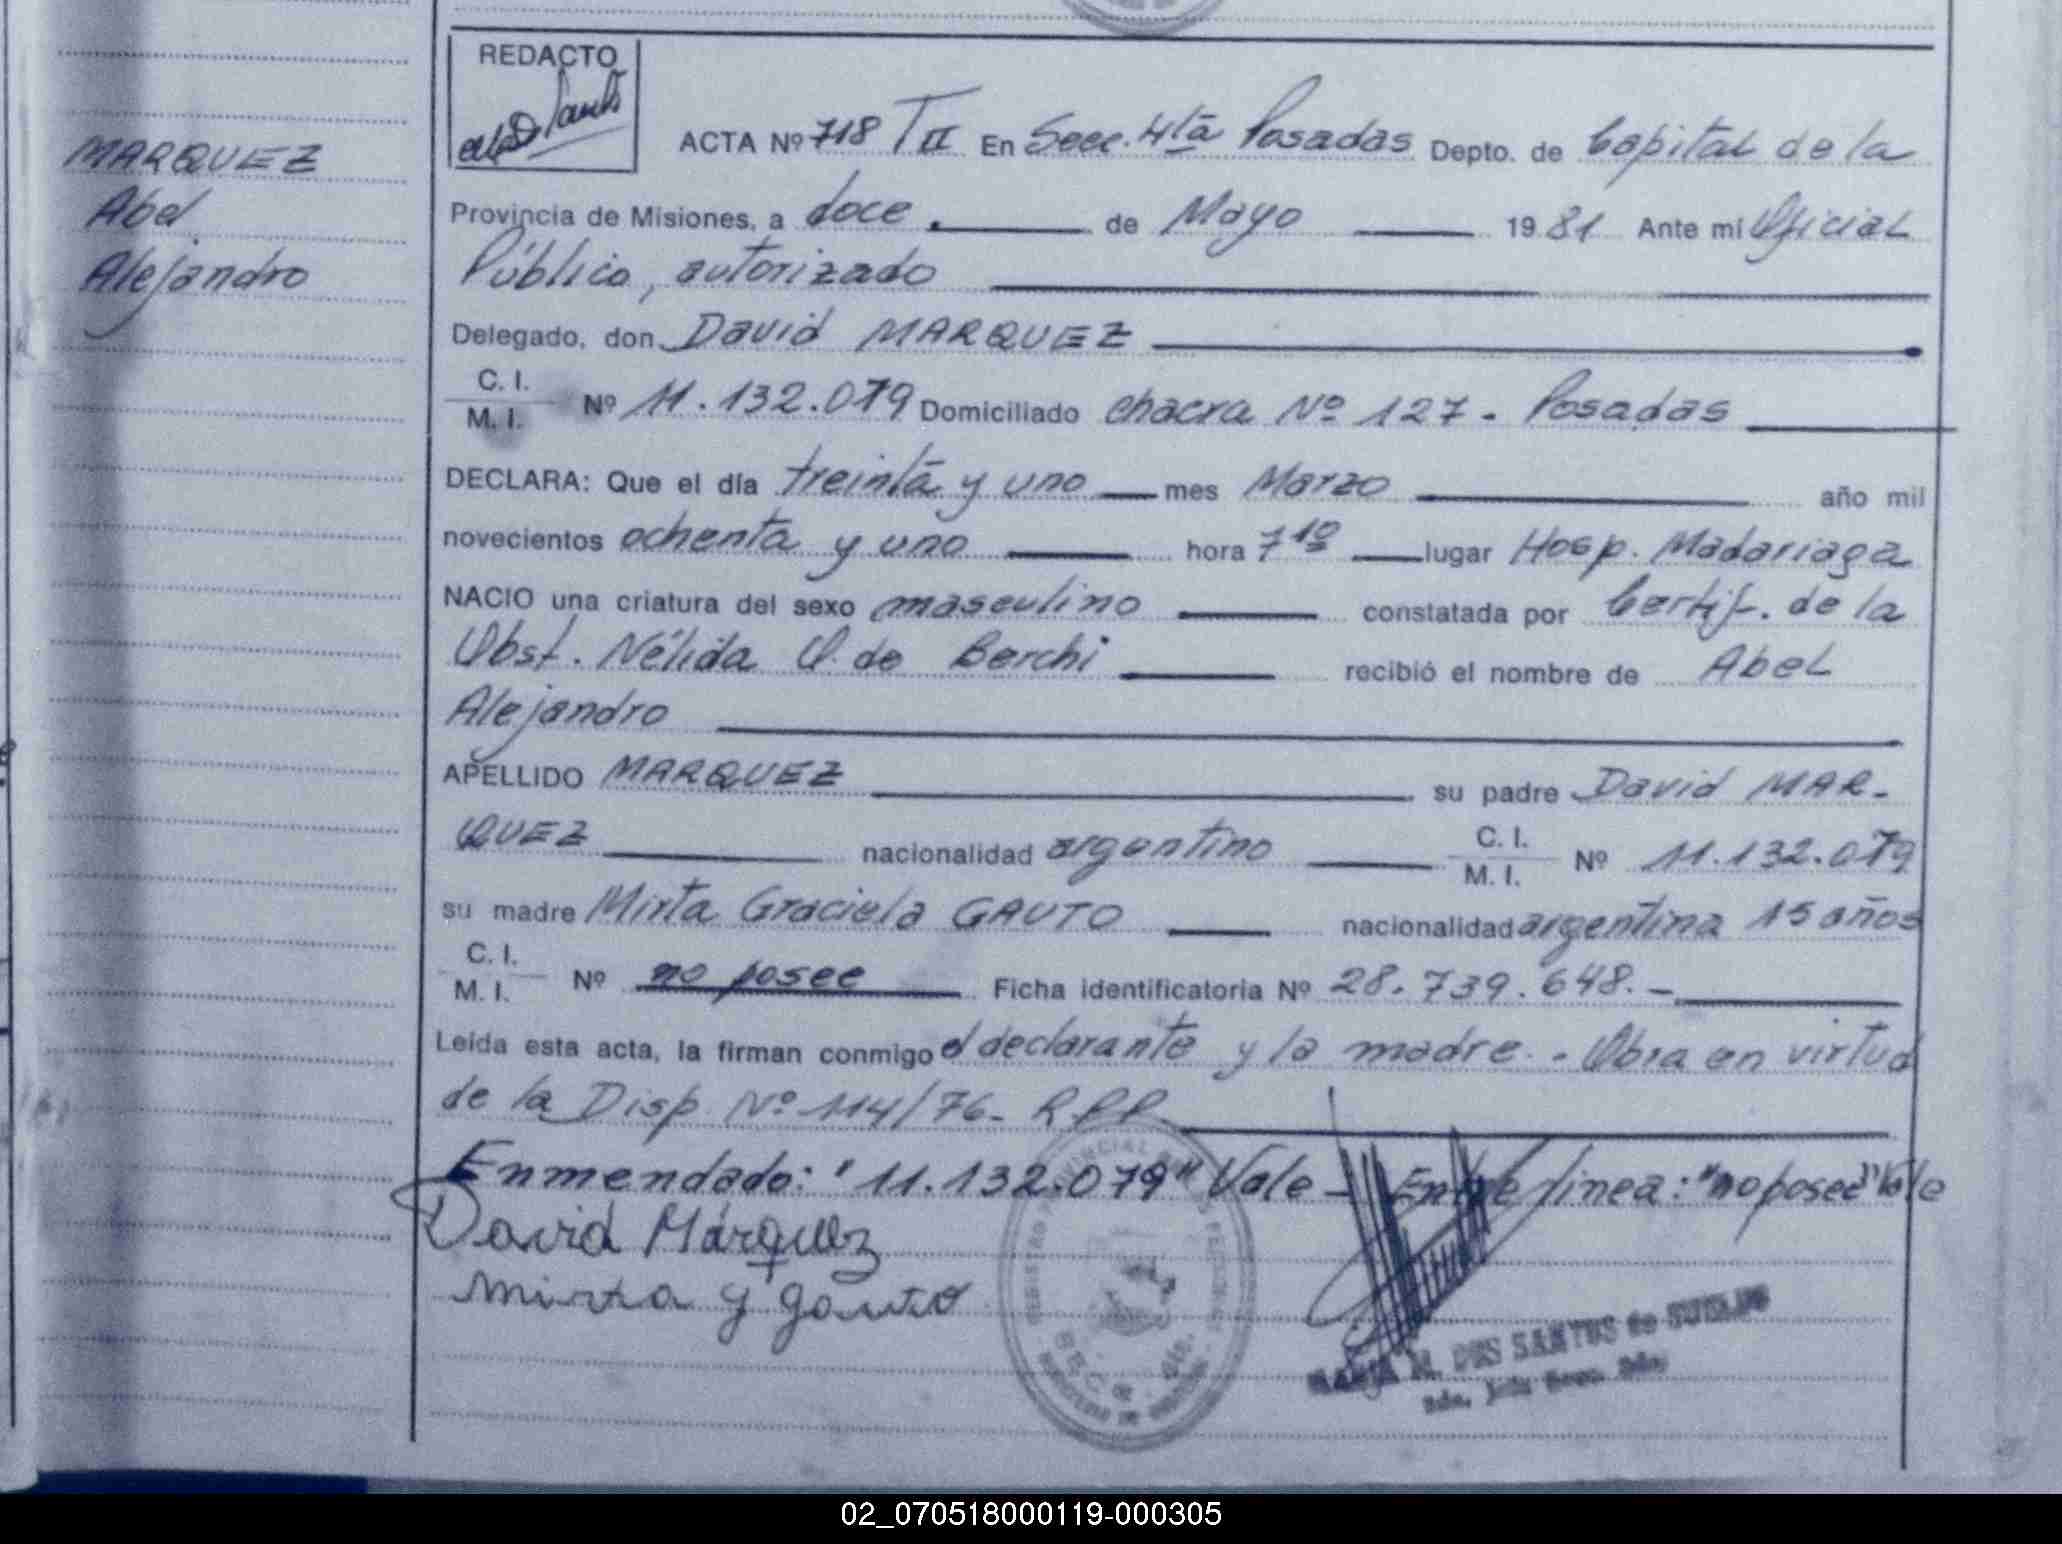 REDACTO
MARQUEZ
Abel
Alejandro
ACTA Nº 718 TII En Secc. 4ta Posadas Depto. de Capital de la
Provincia de Misiones, a doce de Mayo 1981 Ante mi Oficial
Público, autorizado
Delegado, don David MARQUEZ
C. I.
M. I. Nº 11.132.079 Domiciliado chacra Nº 127 - Posadas
DECLARA: Que el día treinta y uno mes Marzo año mil
novecientos ochenta y uno hora 7 10 lugar Hosp. Madariaga
NACIO una criatura del sexo masculino constatada por Certif. de la
Obst. Nélida O. de Berchi recibió el nombre de Abel
Alejandro
APELLIDO MARQUEZ su padre David MAR-
QUEZ nacionalidad argentino C. I. M. I. Nº 11.132.079
su madre Mirta Graciela GAUTO nacionalidad argentina 15 años
C. I.
M. I. Nº no posee Ficha identificatoria Nº 28.739.648.-
Leída esta acta, la firman conmigo el declarante y la madre.- Obra en virtud
de la Disp Nº 114/76- R.P.P.
Enmendado: "11.132.079" Vale - Entre linea: "no posee" Vale
David Márquez
Mirta g gauto
REGISTRO PROVINCIAL DE LAS PERSONAS
M. DOS SANTOS de
02_070518000119-000305